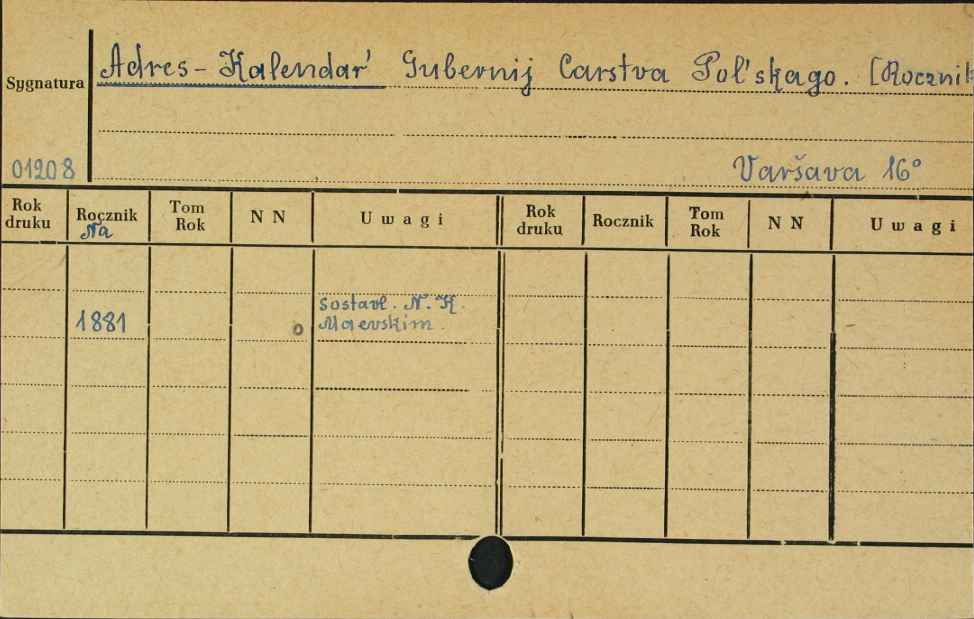 Adres-Kalendar' Gubernij Carstva Pol'skago. [Rocznik
Sygnatura
01208
Varšava 16°
Rok druku Rocznik Na Tom Rok N N Uwagi Rok druku Rocznik Tom Rok N N Uwagi
sostavl. N. K.
1881 Maevskim.